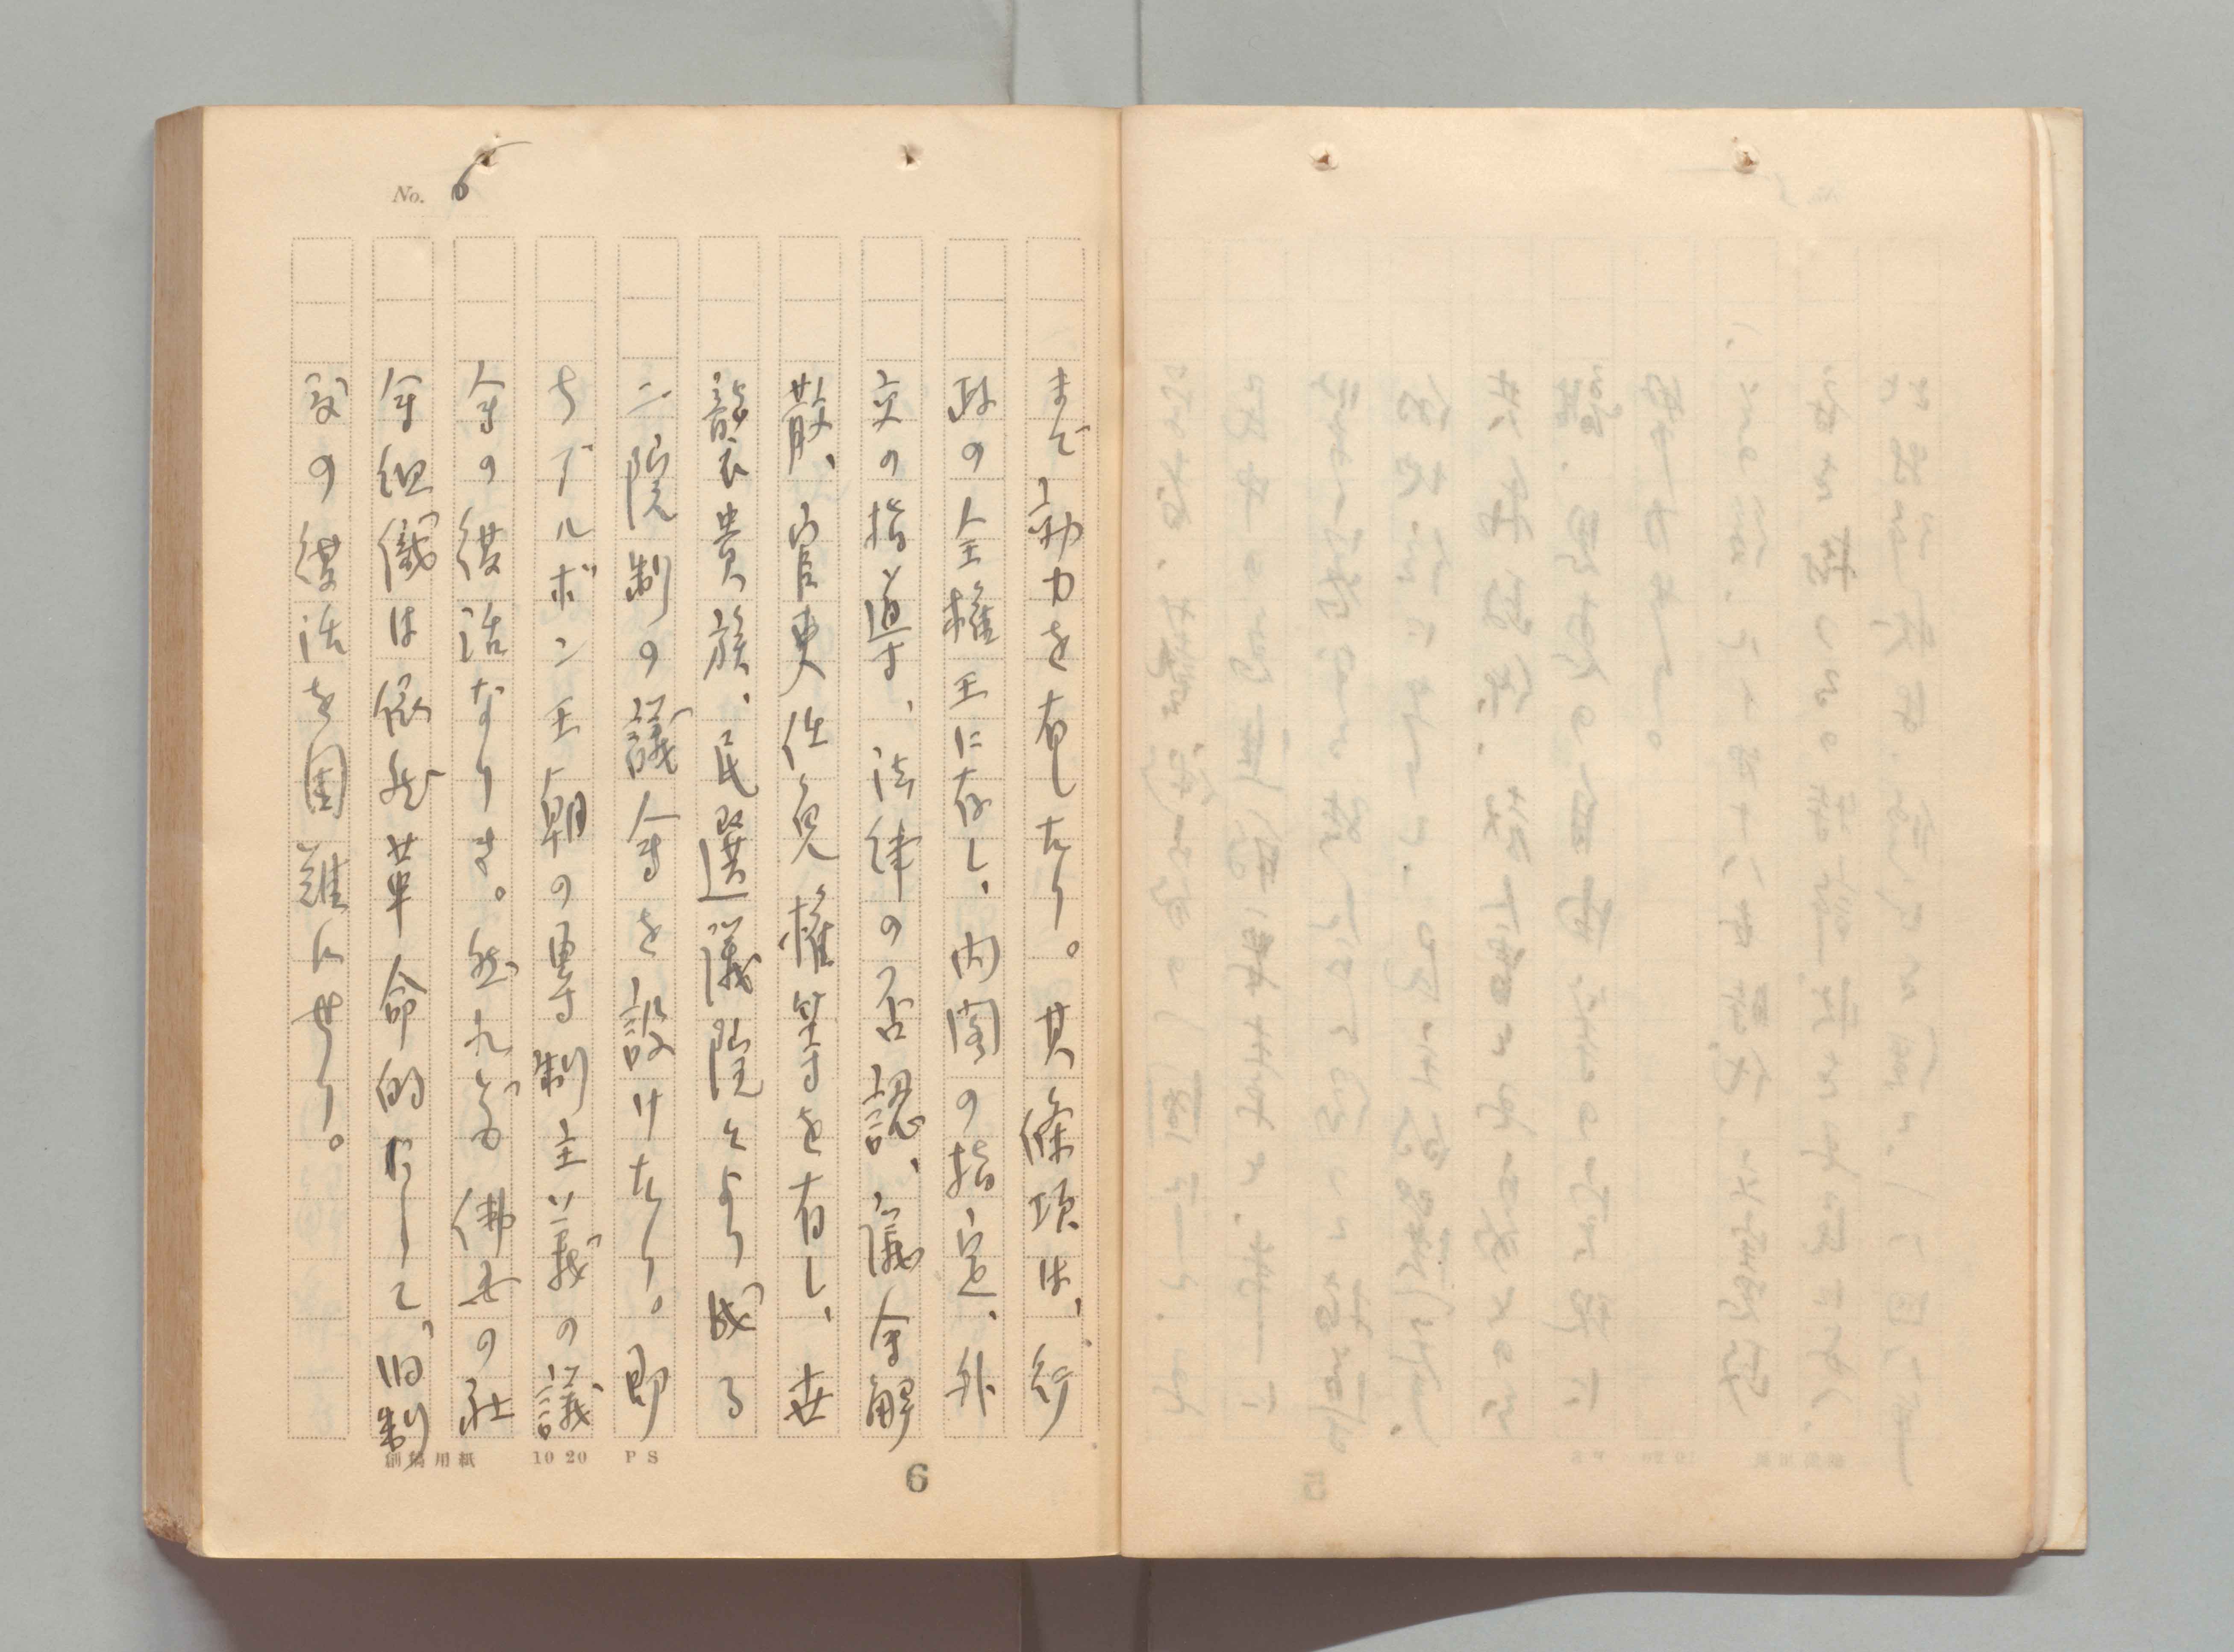 No. 6
まで効力を有したり。其條項は、行
政の全権王に存し、内閣の指定、外
交の指導、法律の否認、議会解
散、官吏任免権等を有し、世
襲貴族、民選議院とより成る
二院制の議会を設けたり。即
ちブルボン王朝の専制主義の議
会の復活なりき。然れども佛国の社
会組織は依然革命的にして、旧制
度の復活を困難にせり。
創稿用紙 10 20 P S
6